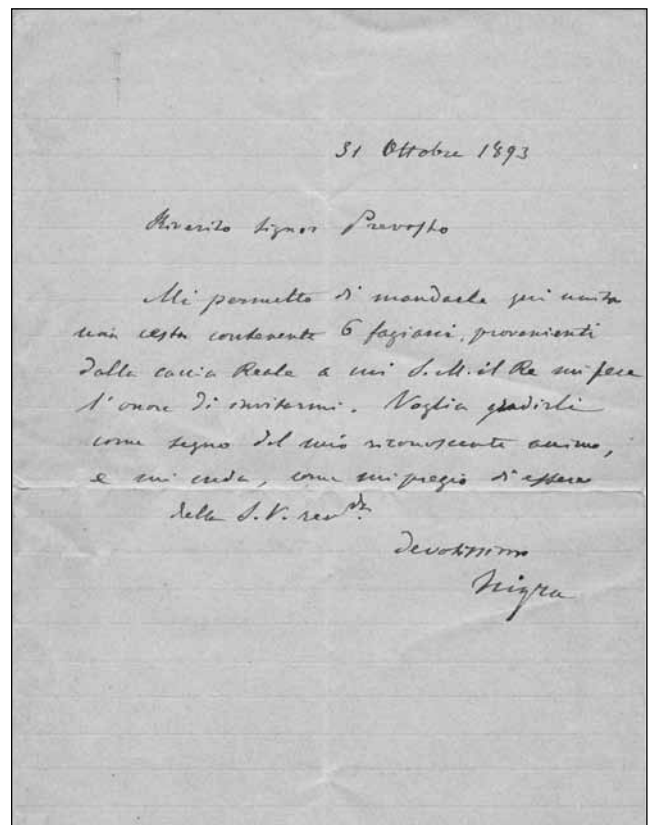 31 Ottobre 1893
Riverito Signor Prevosto
Mi permetto di mandarle qui unita
una cesta contenente 6 fagiani, provenienti
dalla caccia Reale a cui S. M. il Re mi fece
l'onore di invitarmi. Voglia gradirli
come segno del mio riconoscente animo,
e mi creda, come mi pregio di essere
della S. V. rev.da
devotissimo
Nigra